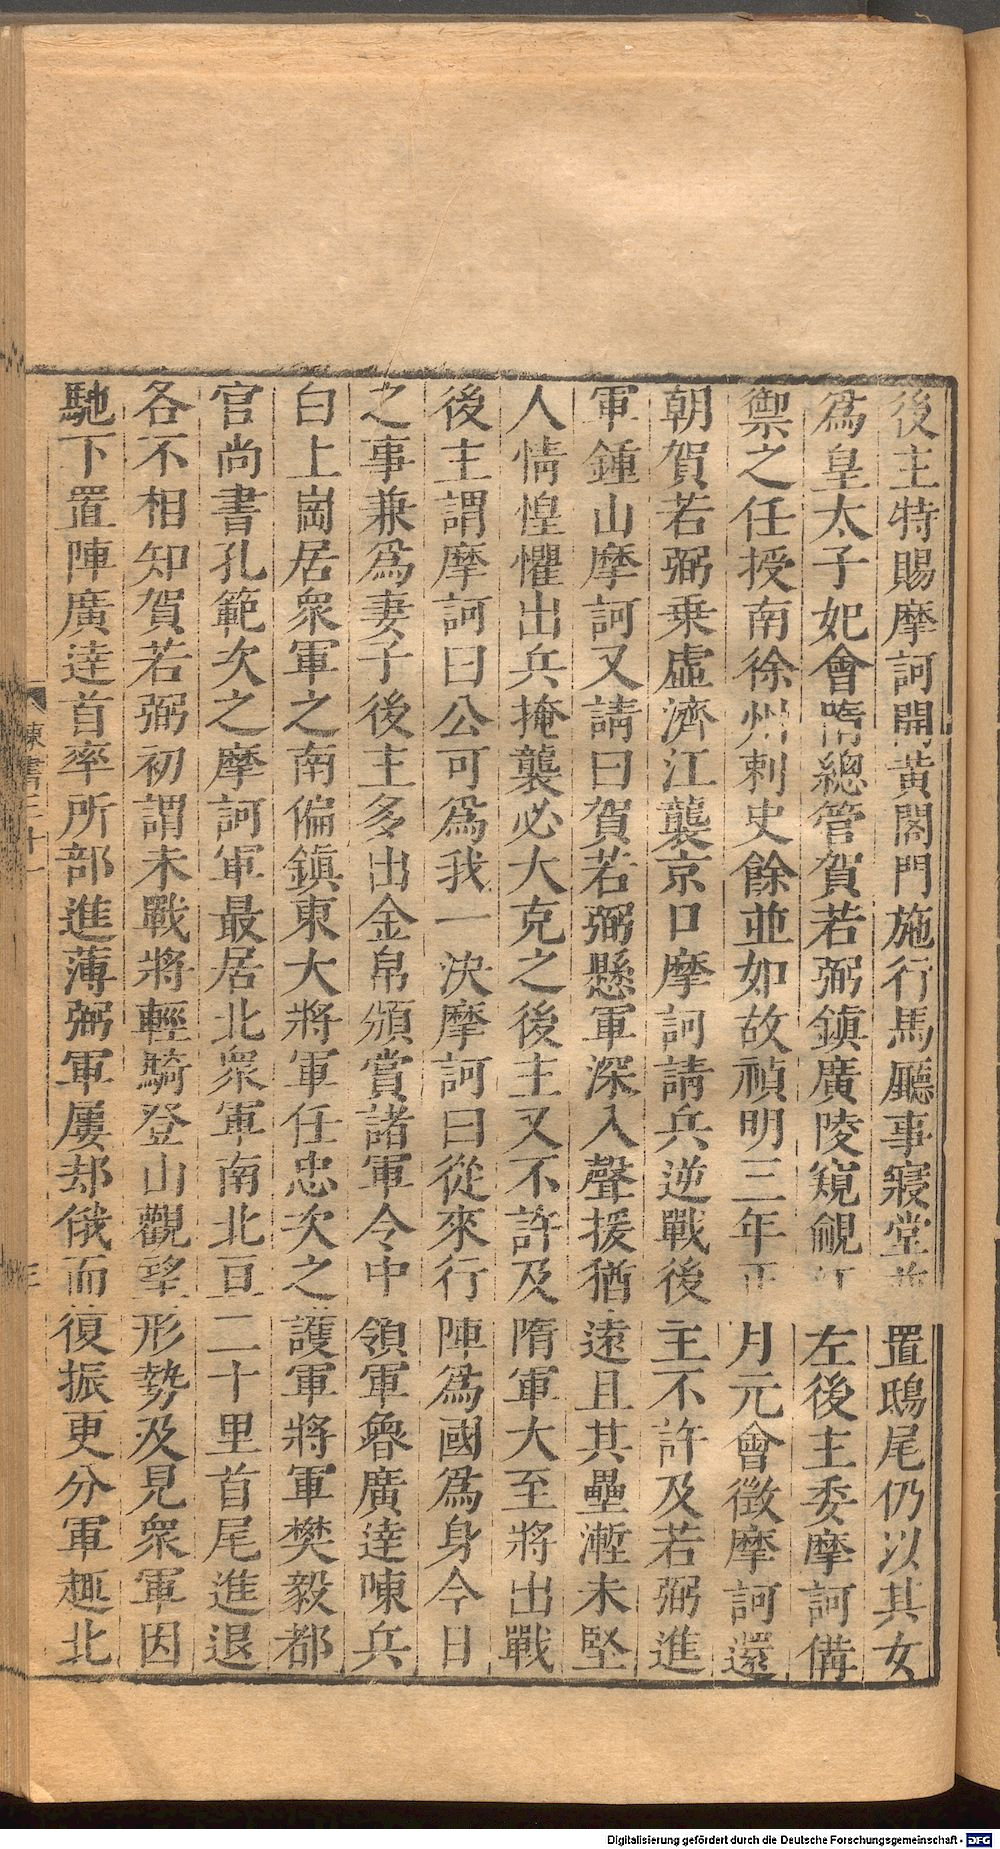 後主特賜摩訶開黃閣門施行馬廳事寢堂並置鴟尾仍以其女
爲皇太子妃會隋總管賀若弼鎭廣陵窺覦江左後主委摩訶備
禦之任授南徐州刺史餘並如故禎明三年正月元會徵摩訶還
朝賀若弼乗虛濟江襲京口摩訶請兵逆戰後主不許及若弼進
軍鍾山摩訶又請曰賀若弼懸軍深入聲援猶遠且其壘漸未堅
人情惶懼出兵掩襲必大克之後主又不許及隋軍大至將出戰
後主謂摩訶曰公可爲我一決摩訶曰從來行陣爲國爲身今日
之事兼爲妻子後主多出金帛頒賞諸軍令中領軍魯廣逹陳兵
白上崗居衆軍之南偏鎭東大將軍任忠次之護軍將軍樊毅都
官尚書孔範次之摩訶軍最居北衆軍南北亘二十里首尾進退
各不相知賀若弼初謂未戰將輕騎登山觀望形勢及見衆軍因
馳下置陣廣逹首率所部進薄弼軍屢却俄而復振更分軍趣北
陳書三十一
Digitalisierung gefördert durch die Deutsche Forschungsgemeinschaft - DFG